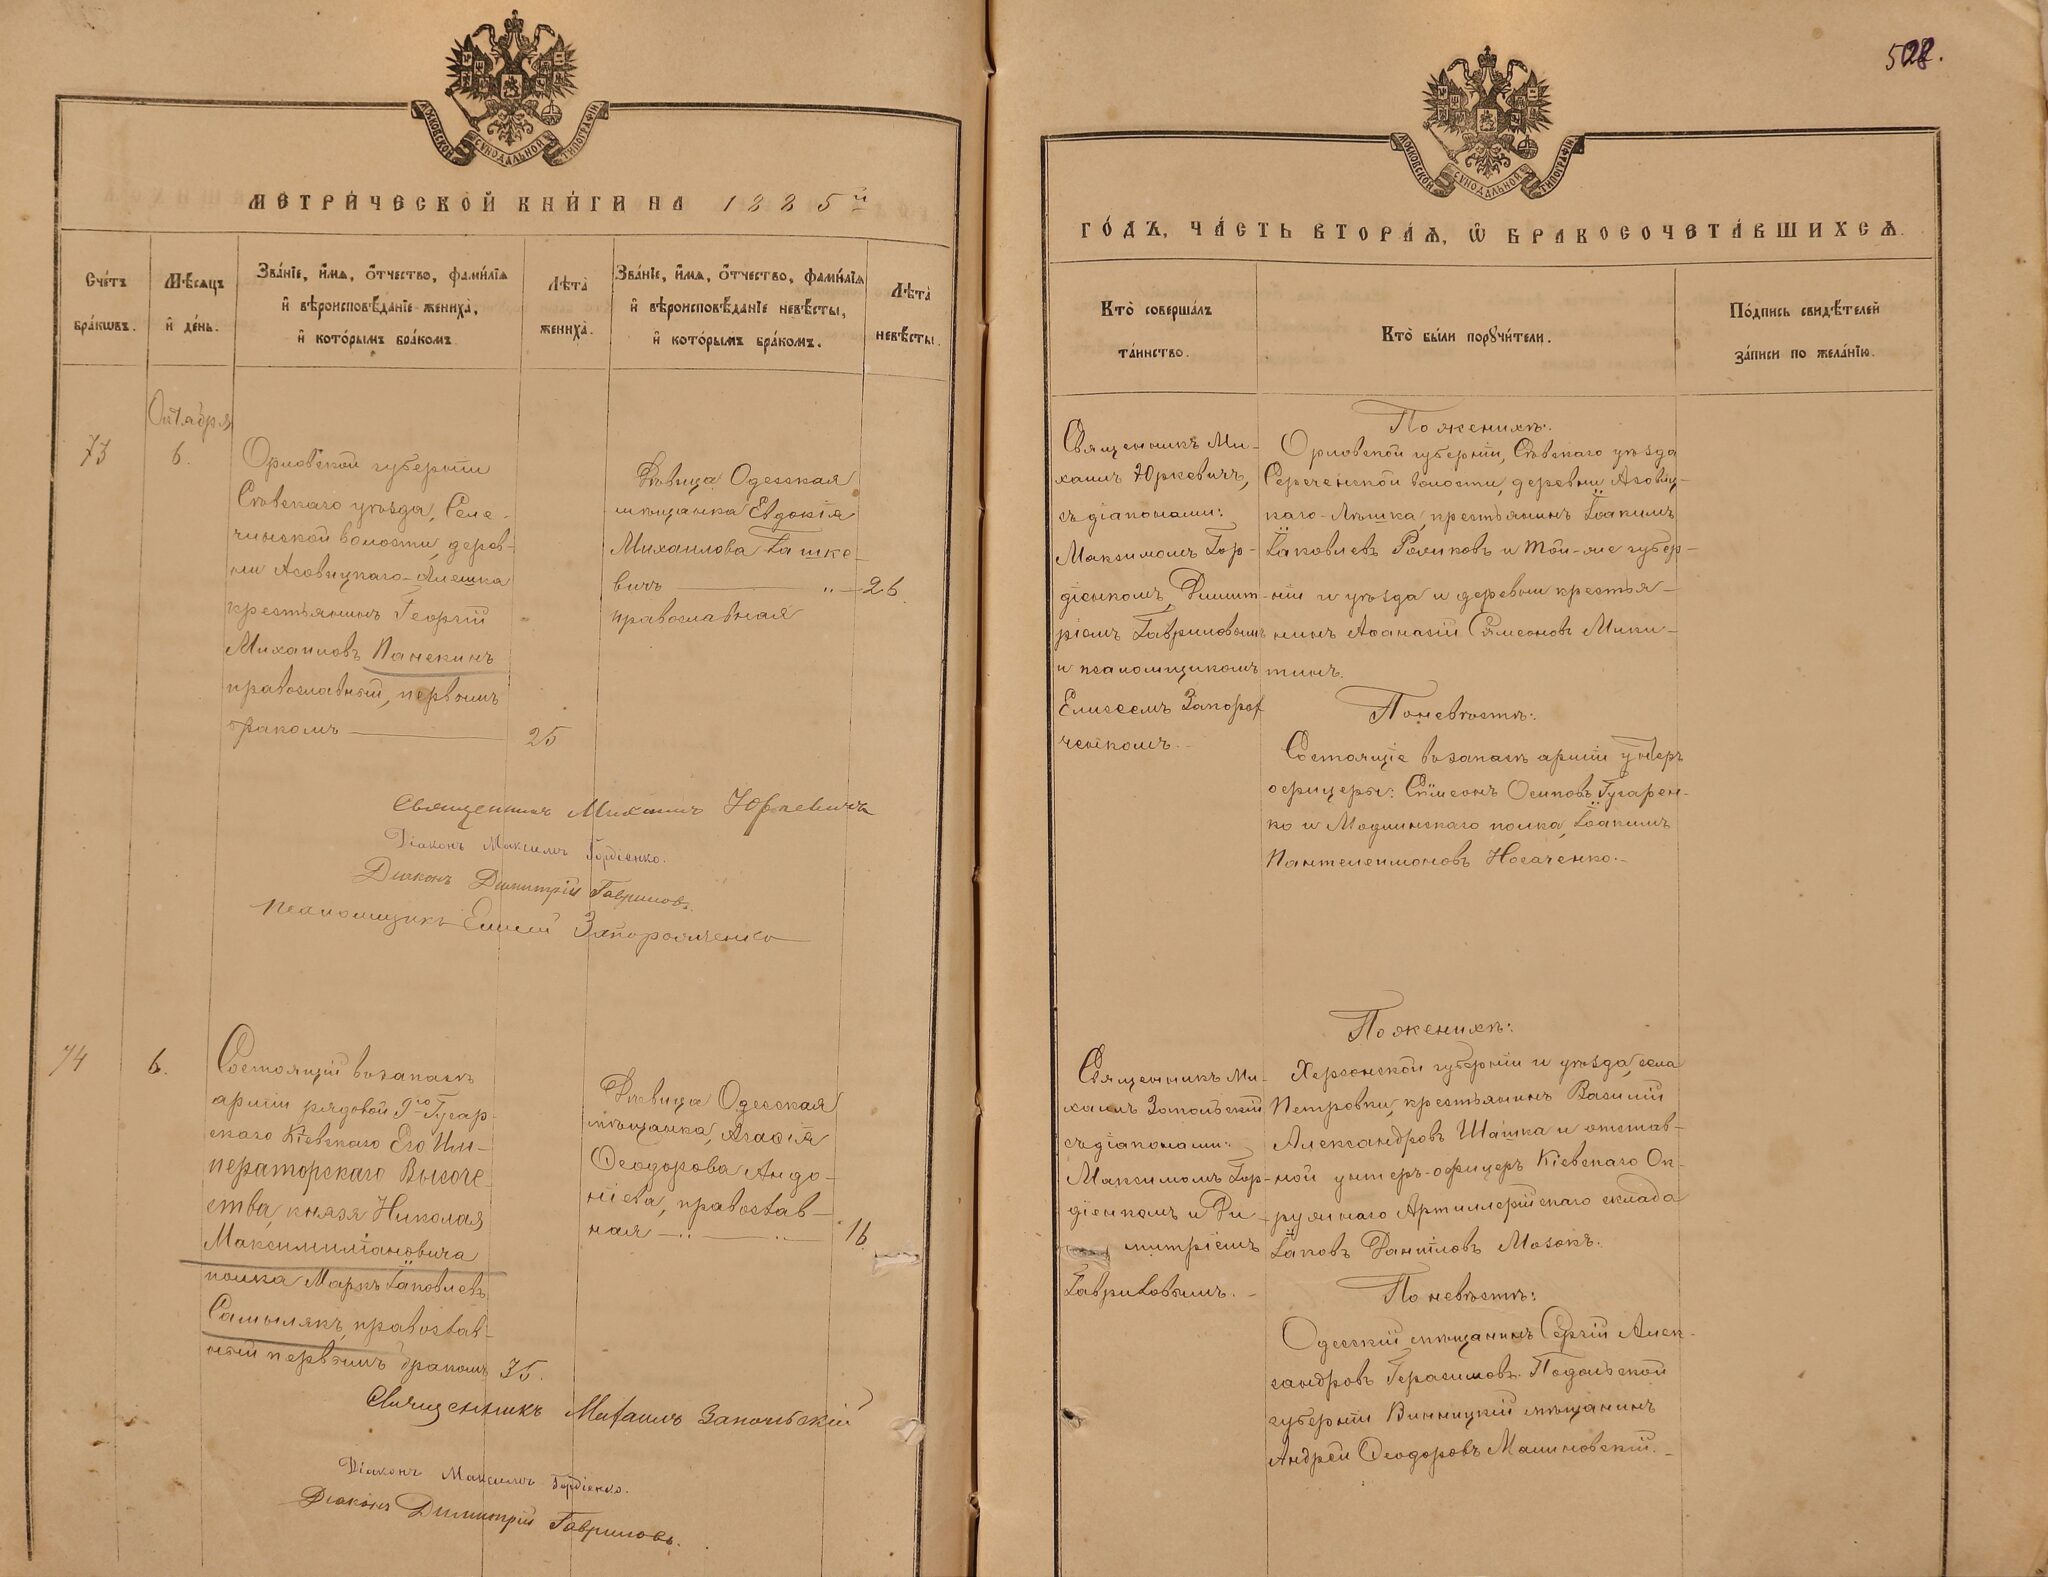 МОСКОВСКОЙ СУНОДАЛЬНОЙ ТИПОГРАФІИ
МЕТРИ́ЧЕСКОЙ КНИ́ГИ НА 1885й
Сче́тъ бра́кѡвъ.
Мѣ́сяцъ и де́нь.
Зва́нїе, и҆́мѧ, ѻ҆́тчество, фами́лїѧ
и҆ вѣроисповѣ́данїе жениха̀,
и҆ кото́рымъ бра́комъ.
Лѣ́та
жениха̀.
Зва́нїе, и҆́мѧ, ѻ҆́тчество, фами́лїѧ
и҆ вѣроисповѣ́данїе невѣ́сты,
и҆ кото́рымъ бра́комъ.
Лѣ́та
невѣ́сты.
Октября
73
6.
Орловской губерніи
Сѣвскаго уѣзда, Селе-
чинской волости, дерев-
ни Асовицкаго-Лешка
крестьянинъ Георгій
Михаиловъ Панекинъ
православный, первымъ
бракомъ 25
Дѣвица Одесская
мѣщанка Евдокія
Михаилова Гашке-
вичъ 26.
православная
Священникъ Михаилъ Юркевичъ
Діаконъ Максимъ Гордіенко.
Діаконъ Димитрій Гавриловъ.
Псаломщикъ Елисей Запорожченко
74
6.
Состоящій въ запасѣ
арміи рядовой 9го Гусар-
скаго Кіевскаго Его Им-
ператорскаго Высоче-
ства, князя Николая
Максимиліановича
полка Маркъ Іаковлевъ
Самылякъ, православ-
ный первымъ бракомъ 35.
Дѣвица Одесская
мѣщанка, Агафія
Ѳеодорова Андо-
ніева, православ-
ная 16.
Священникъ Михаилъ Запольскій
Діаконъ Максимъ Гордіенко.
Діаконъ Димитрій Гавриловъ.
МОСКОВСКОЙ СУНОДАЛЬНОЙ ТИПОГРАФІИ
ГО́ДЪ, ЧА́СТЬ ВТОРА́Ѧ, Ѽ БРАКОСОЧЕТА́ВШИХСѦ.
Кто̀ соверша́лъ
та́инство.
Кто̀ бы́ли порꙋчи́тели.
По́дпись свидѣ́телей
за́писи по жела́нїю.
Священникъ Ми-
хаилъ Юркевичъ,
съ діаконами:
Максимомъ Гор-
діенкомъ, Димит-
ріемъ Гавриловымъ
и псаломщикомъ
Елисеемъ Запорож
ченкомъ.
По женихѣ:
Орловской губерніи, Сѣвскаго уѣзда
Сереченской волости, деревни Асовиц-
каго-Лѣшка, крестьянинъ Іоакимъ
Іаковлевъ Роликовъ и той-же губер-
ніи и уѣзда и деревни крестья-
нинъ Афанасій Сѵмеоновъ Мики-
тинъ.
По невѣстѣ:
Состоящіе въ запасѣ арміи унтеръ
офицеры: Сѵмеонъ Осиповъ Гугарен-
ко и Модлинскаго полка, Іоакимъ
Пантелеимоновъ Носаченко.
Священникъ Ми-
хаилъ Запольскій
съ діаконами:
Максимомъ Гор-
діенкомъ и Ди-
митріемъ
Гавриловымъ.
По женихѣ:
Херсонской губерніи и уѣзда, села
Петровки, крестьянинъ Василій
Александровъ Шашка и отстав-
ной унтеръ-офицеръ Кіевскаго Ок-
ружнаго Артиллерійскаго склада
Іаковъ Даніиловъ Мозокъ.
По невѣстѣ:
Одесскій мѣщанинъ Сергій Алек-
сандровъ Герасимовъ. Подольской
губерніи Винницкій мѣщанинъ
Андрей Ѳеодоровъ Малиновскій.